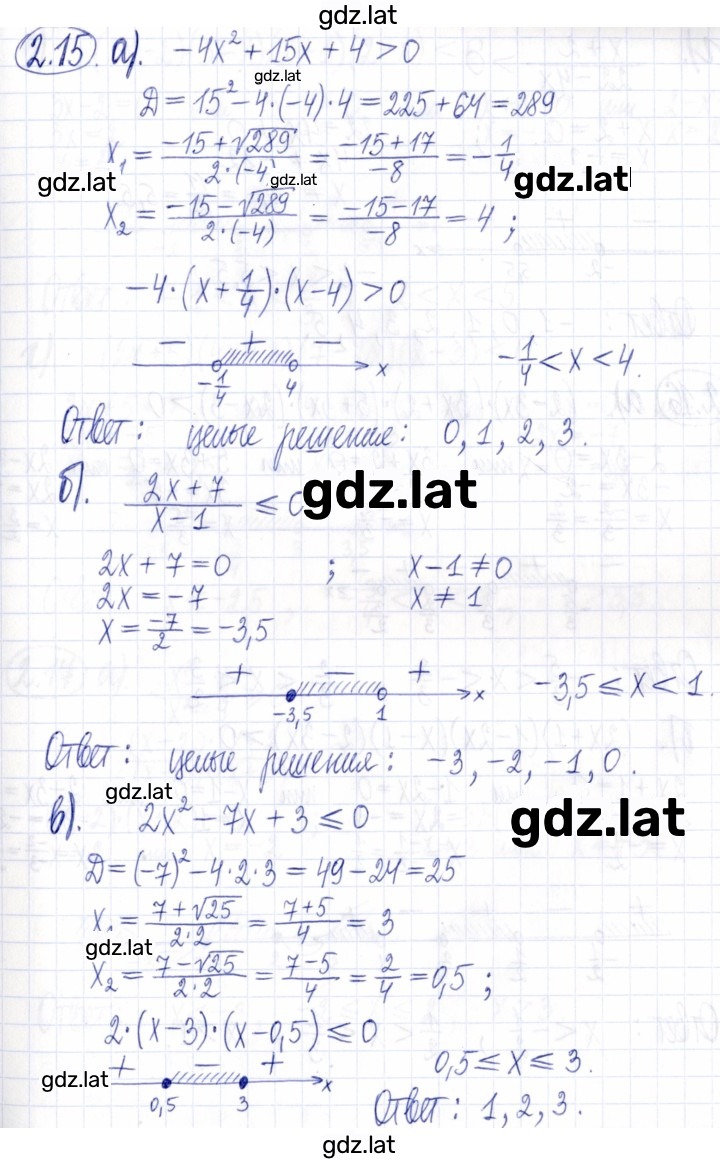 gdz.lat
2.15. а). -4x² + 15x + 4 > 0
gdz.lat
Д = 15² - 4·(-4)·4 = 225 + 64 = 289
x₁ = (-15+√289)/(2·(-4) = (-15+17)/(-8) = -1/4
gdz.lat gdz.lat gdz.lat
x₂ = (-15-√289)/(2·(-4)) = (-15-17)/(-8) = 4 ;
-4·(x+1/4)·(x-4) > 0
- + - -1/4 < x < 4.
-1/4 4 x
Ответ: целые решения: 0, 1, 2, 3.
б). (2x+7)/(x-1) ≤ 0 gdz.lat
2x + 7 = 0 ; x - 1 ≠ 0
2x = -7 x ≠ 1
x = -7/2 = -3,5
+ - + -3,5 ≤ x < 1.
-3,5 1 x
Ответ: целые решения: -3, -2, -1, 0.
gdz.lat
в). 2x² - 7x + 3 ≤ 0 gdz.lat
Д = (-7)² - 4·2·3 = 49 - 24 = 25
x₁ = (7+√25)/(2·2) = (7+5)/4 = 3
gdz.lat
x₂ = (7-√25)/(2·2) = (7-5)/4 = 2/4 = 0,5 ;
2·(x-3)·(x-0,5) ≤ 0
gdz.lat + - + 0,5 ≤ x ≤ 3.
0,5 3 x
Ответ: 1, 2, 3.
gdz.lat